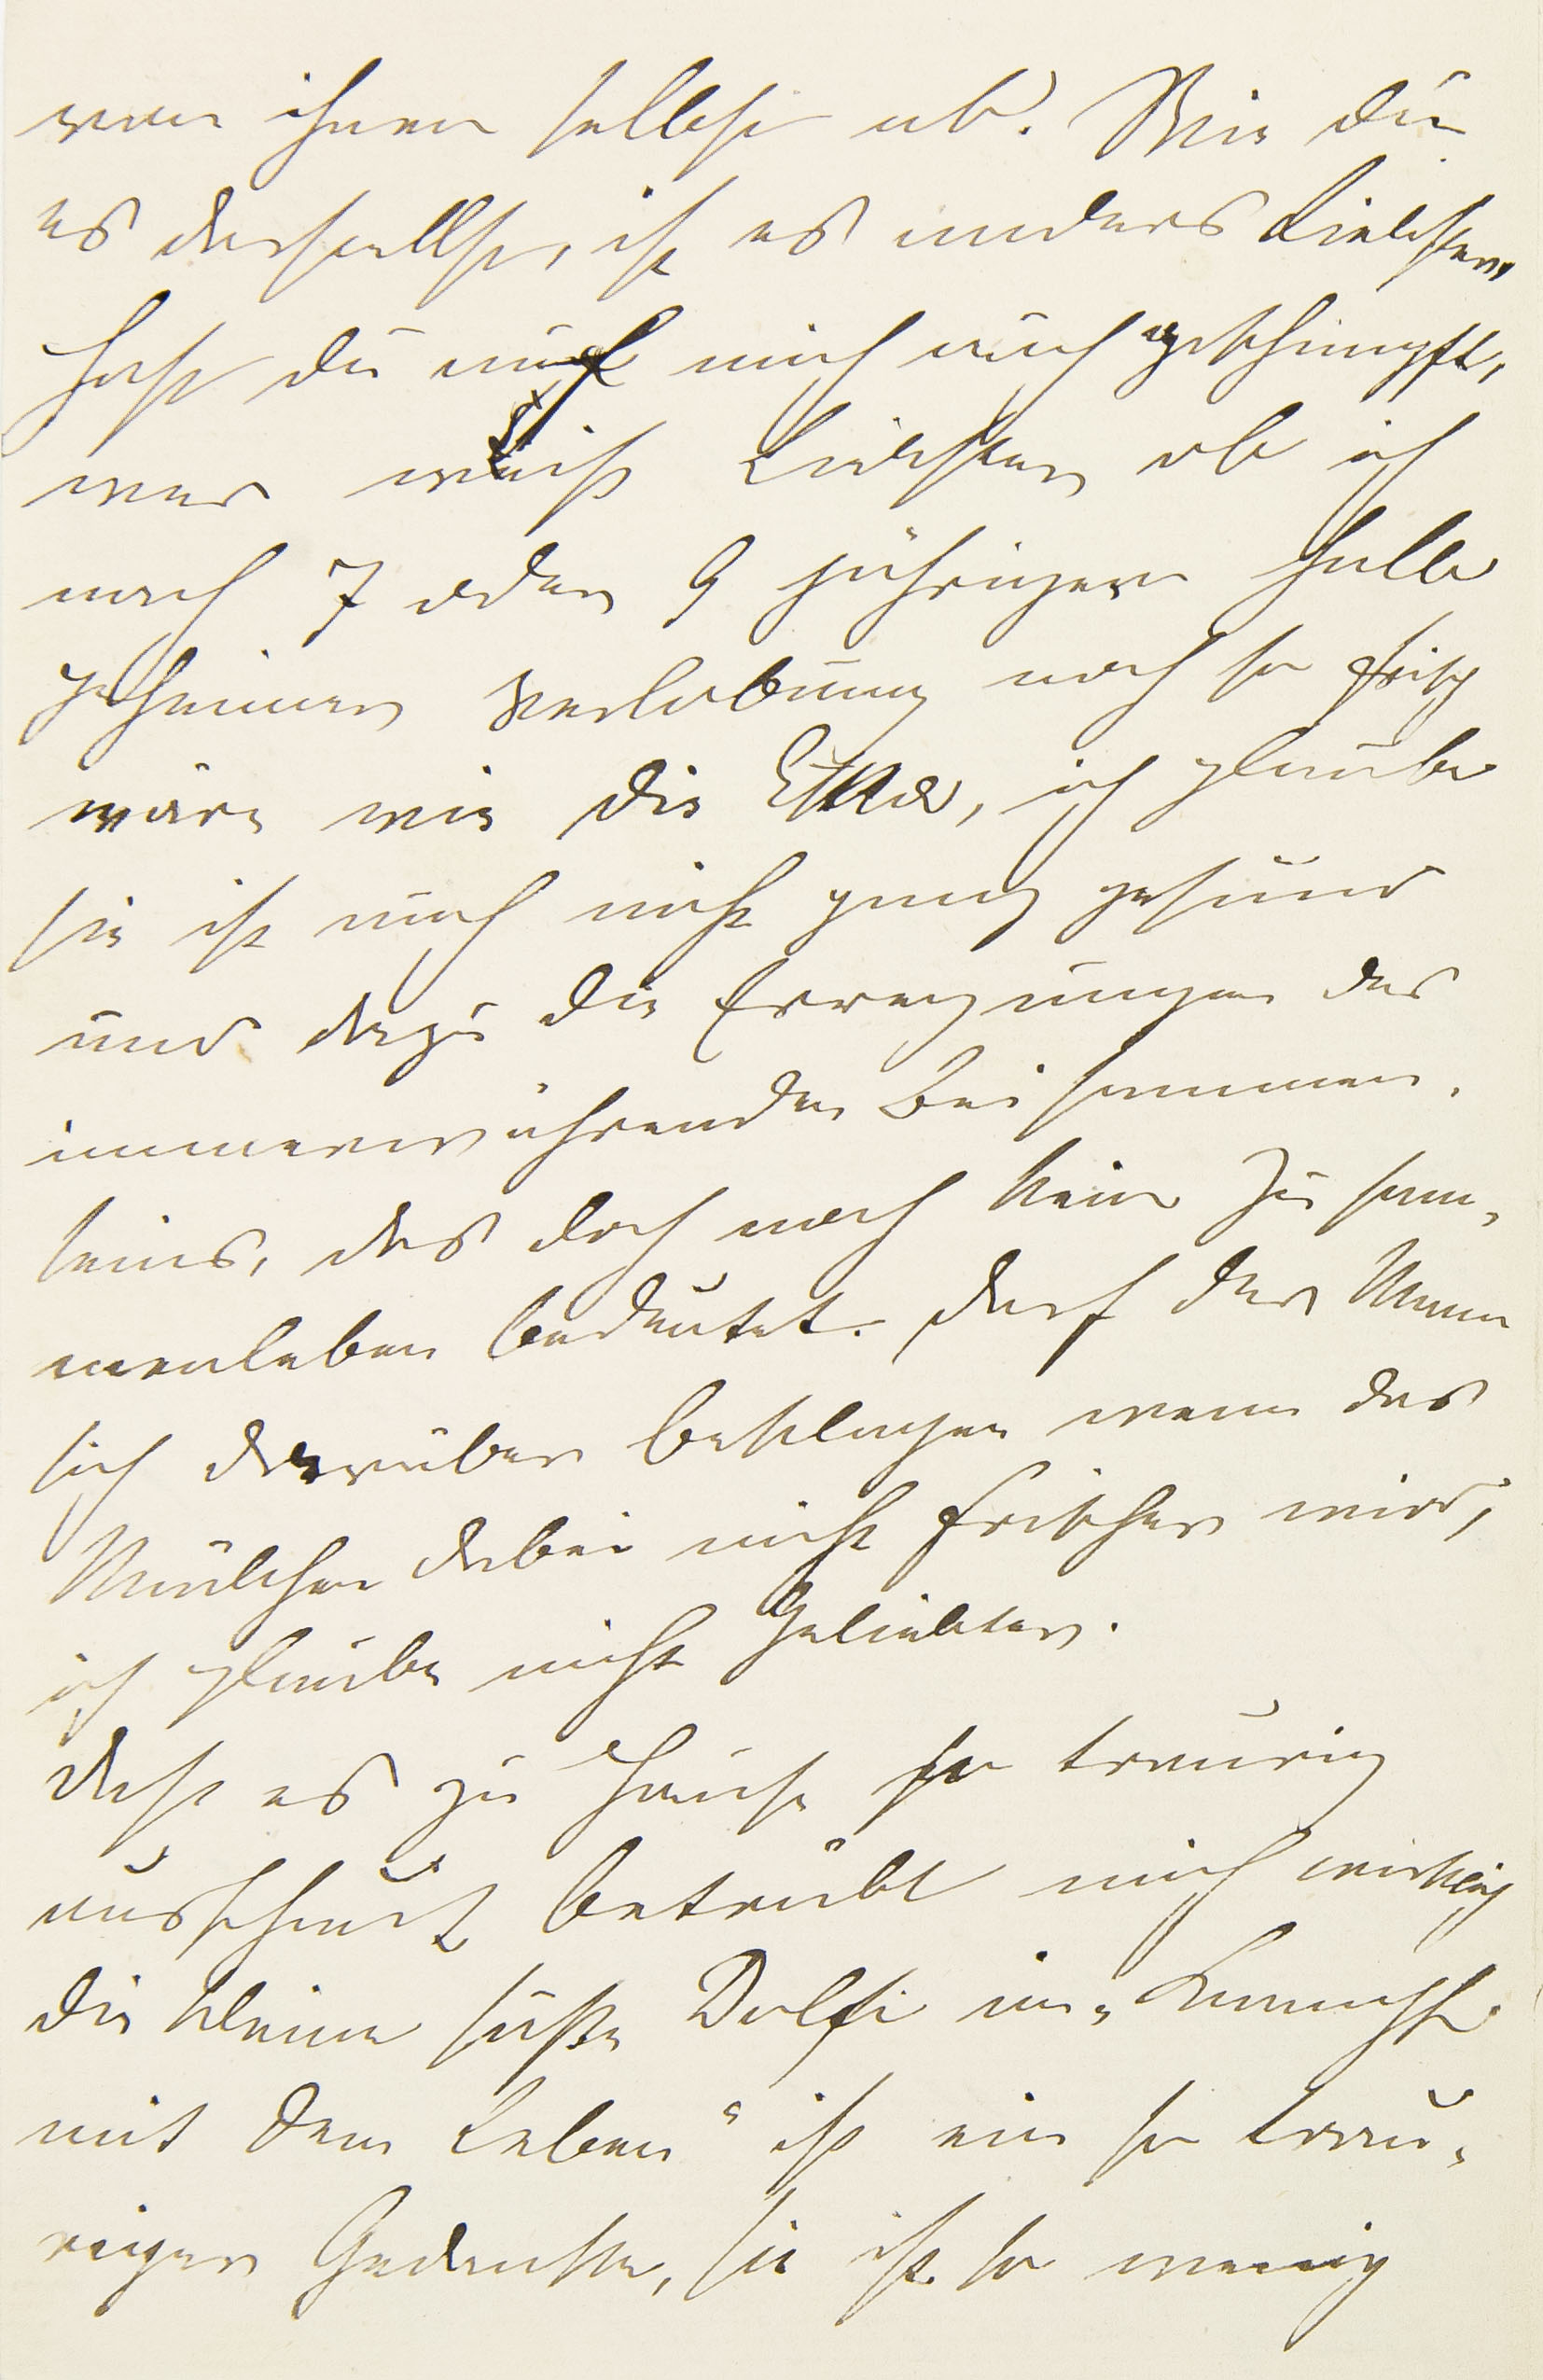 von ihnen selbst ab. Wie du
es darstellst, ist es anders Liebster,
hast du auf mich auch geschimpft,
wer weiß Liebster ob ich
nach 7 oder 9 jähriger halb
geheimer Verlobung noch so frisch
wäre wie die Elise, ich glaube
sie ist auch nicht ganz gesund
und dazu die Erregungen des
immerwährenden Beisammen-
seins, das doch noch kein Zusam-
menleben bedeutet. Darf der Mann
sich darüber beklagen wenn das
Mädchen dabei nicht frischer wird,
ich glaube nicht Geliebter.
Daß es zu Hause so traurig
ausschaut betrübt mich wirklich
die kleine süße Dolfi im „Kampfe
mit dem Leben“ ist ein so trau-
riger Gedanke, sie ist so wenig